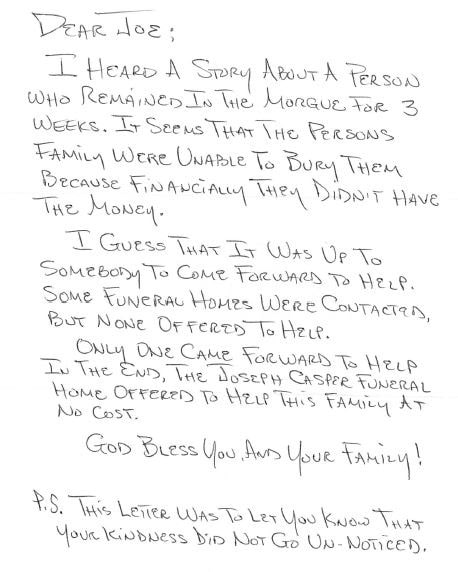 Dear Joe;
I Heard A Story About A Person
Who Remained In The Morgue For 3
Weeks. It Seems That The Persons
Family Were Unable To Bury Them
Because Financially They Didn't Have
The Money.
I Guess That It Was Up To
Somebody To Come Forward To Help.
Some Funeral Homes Were Contacted,
But None Offered To Help.
Only One Came Forward To Help
In The End, The Joseph Casper Funeral
Home Offered To Help This Family At
No Cost.
God Bless You, And Your Family!
P.S. This Letter Was To Let You Know That
Your Kindness Did Not Go Un-Noticed.